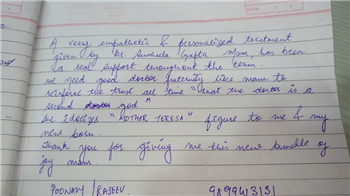 A very empathetic & personalized treatment
given by Dr Sushila Gupta Mam has been
a real support throughout the term.
We need good doctor fraternity like mam to
reinforce the trust all time "that the doctor is a
second god".
She idolizes "MOTHER TERESA" figure to me & my
new born.
Thank you for giving me this new bundle of
joy mam.
POONAM / RAJEEV.
9899413131